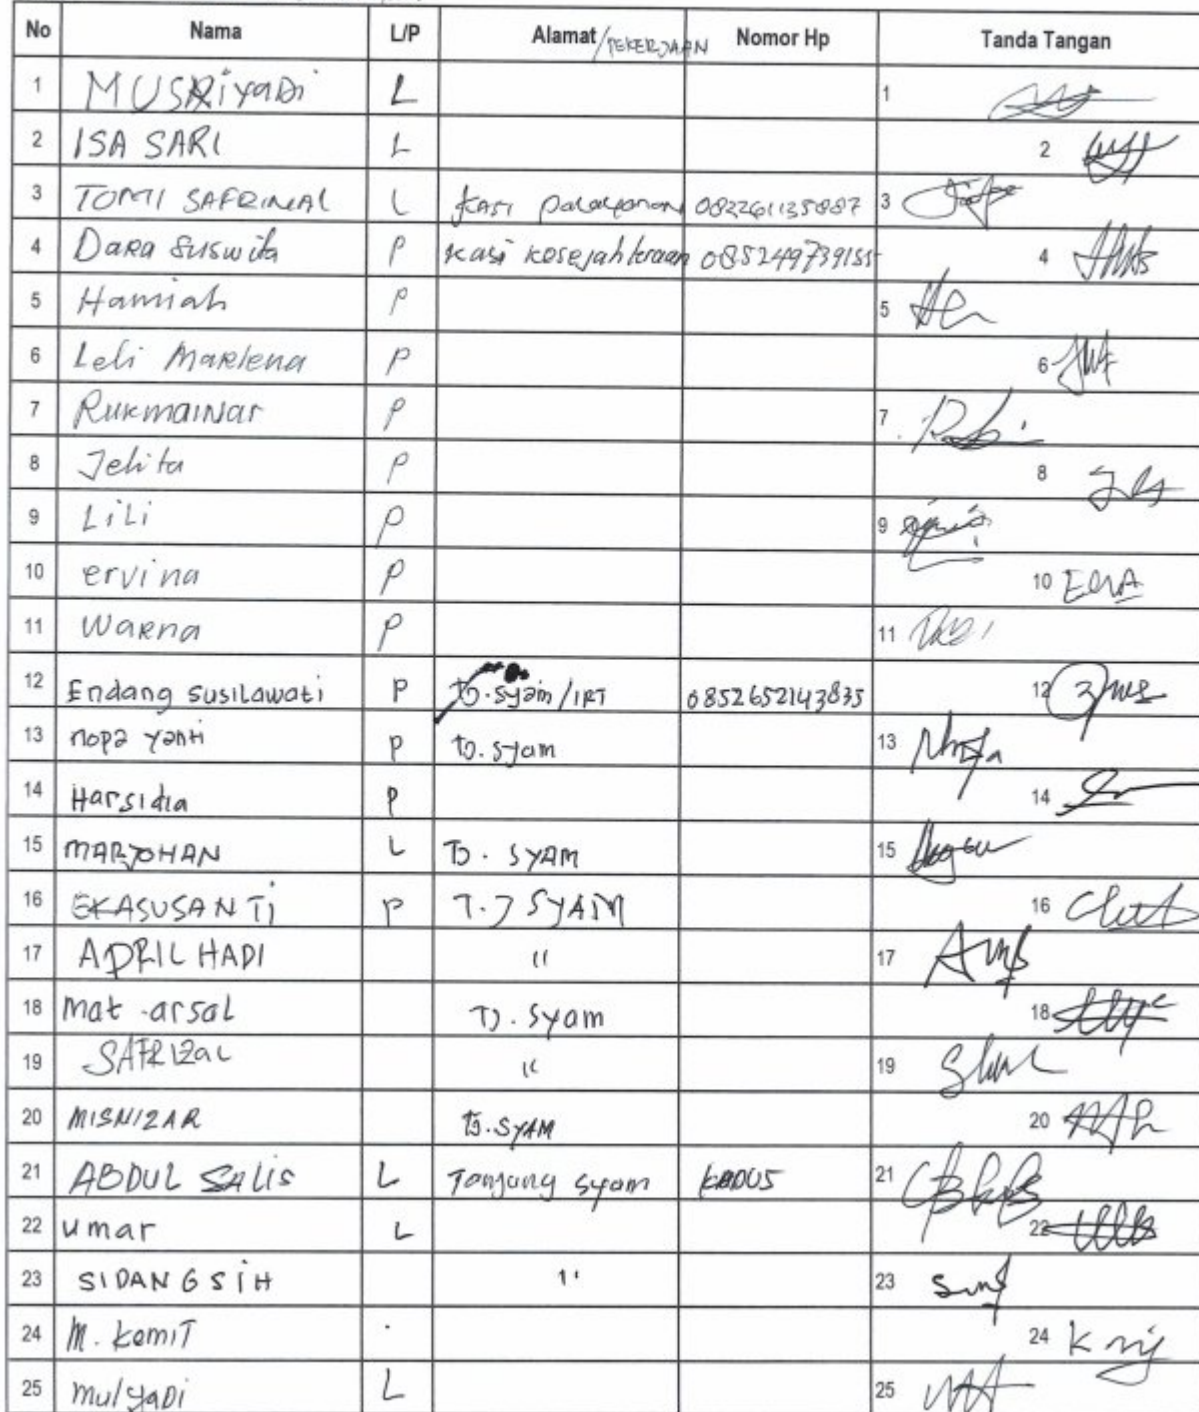 No Nama L/P Alamat/PEKERJAAN Nomor Hp Tanda Tangan
1 MUSRiyaDi L 1
2 ISA SARI L 2
3 TOMI SAFRINAL L kasi palayanan 082261135887 3
4 DaRa Suswita P Kasi kosejahteraan 085249739155 4
5 Hamiah P 5
6 Leli Marlena P 6
7 Rukmainar P 7
8 Jelita P 8
9 LiLi P 9
10 ervina P 10
11 WaRna P 11
12 Endang susilawati P TJ.syam/IRT 0852652143835 12
13 nopa yanti P TJ.syam 13
14 Harsidia P 14
15 MARJOHAN L TJ. SYAM 15
16 EKASUSANTi P T.J SYAM 16
17 APRIL HADI " 17
18 mat arsal TJ.Syam 18
19 SAFRIZAL " 19
20 MISNIZAR TJ.SYAM 20
21 ABDUL SALIS L Tanjung syam KADUS 21
22 umar L 22
23 SIDANGSiH " 23
24 M. komiT 24
25 mulyaDi L 25